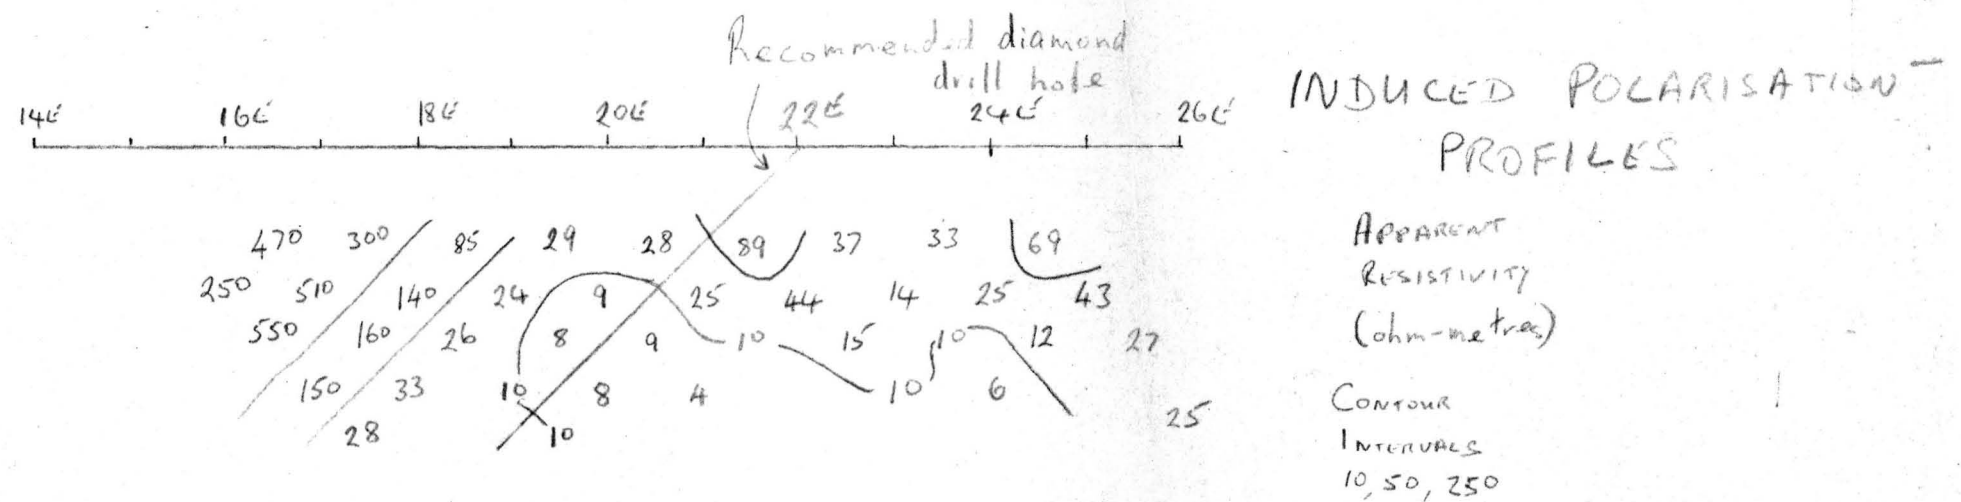 Recommended diamond
drill hole
14E 16E 18E 20E 22E 24E 26E
INDUCED POLARISATION
PROFILES
470 300 85 29 28 89 37 33 69
250 510 140 24 9 25 44 14 25 43
550 160 26 8 9 10 15 10 12 27
150 33 10 8 4 10 6
28 10 25
APPARENT
RESISTIVITY
(ohm-metres)
CONTOUR
INTERVALS
10, 50, 250